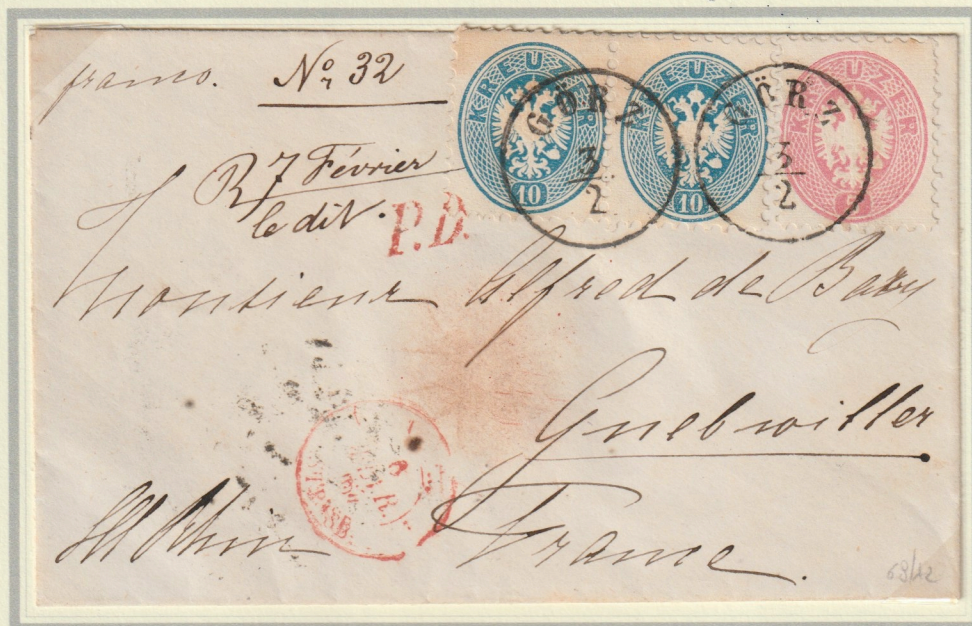 franco. No. 32
KREUZER 10
KREUZER 10
KREUZER
GÖRZ 3/2
GÖRZ 3/2
R 7 Février
le dit.
P.D.
Monsieur Alfred de Bary
Guebwiller
Ht Rhin France.
69/12